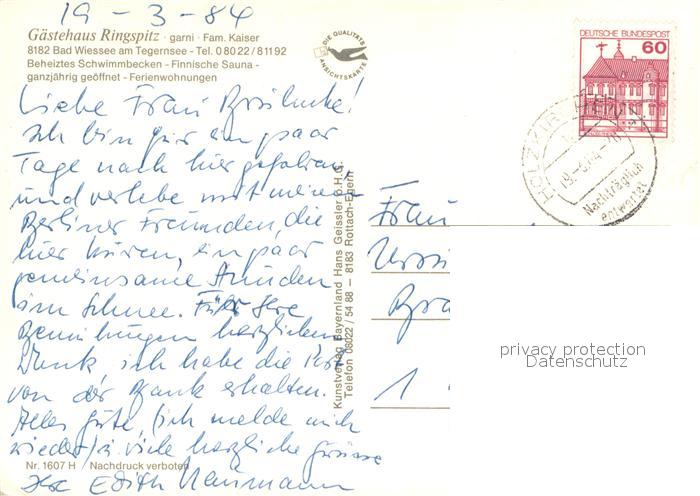 19-3-84
Gästehaus Ringspitz · garni · Fam. Kaiser
8182 Bad Wiessee am Tegernsee - Tel. 0 80 22 / 81192
Beheiztes Schwimmbecken - Finnische Sauna -
ganzjährig geöffnet - Ferienwohnungen
DIE QUALITÄTS
ANSICHTSKARTE
DEUTSCHE BUNDESPOST
60
HOLZKIRCHEN
19.-3.84
Nachträglich
entwertet
Liebe Frau
Ich bin für ein paar
Tage nach hier gefahren
und verlebe mit meinen
Berliner Freunden, die
hier kuren, ein paar
gemeinsame Stunden
im Schnee. Für Ihre
Bemühungen herzlichen
Dank, ich habe die Post
von der Bank erhalten.
Alles Gute, (ich melde mich
wieder) u. viele herzliche Grüsse
Ihre Edith Naumann
Kunstverlag Bayernland Hans Geissler o.H.G.
Telefon 08022 / 54 88 – 8183 Rottach-Egern
Frau
Ursu
Br
1
privacy protection
Datenschutz
Nr. 1607 H / Nachdruck verboten